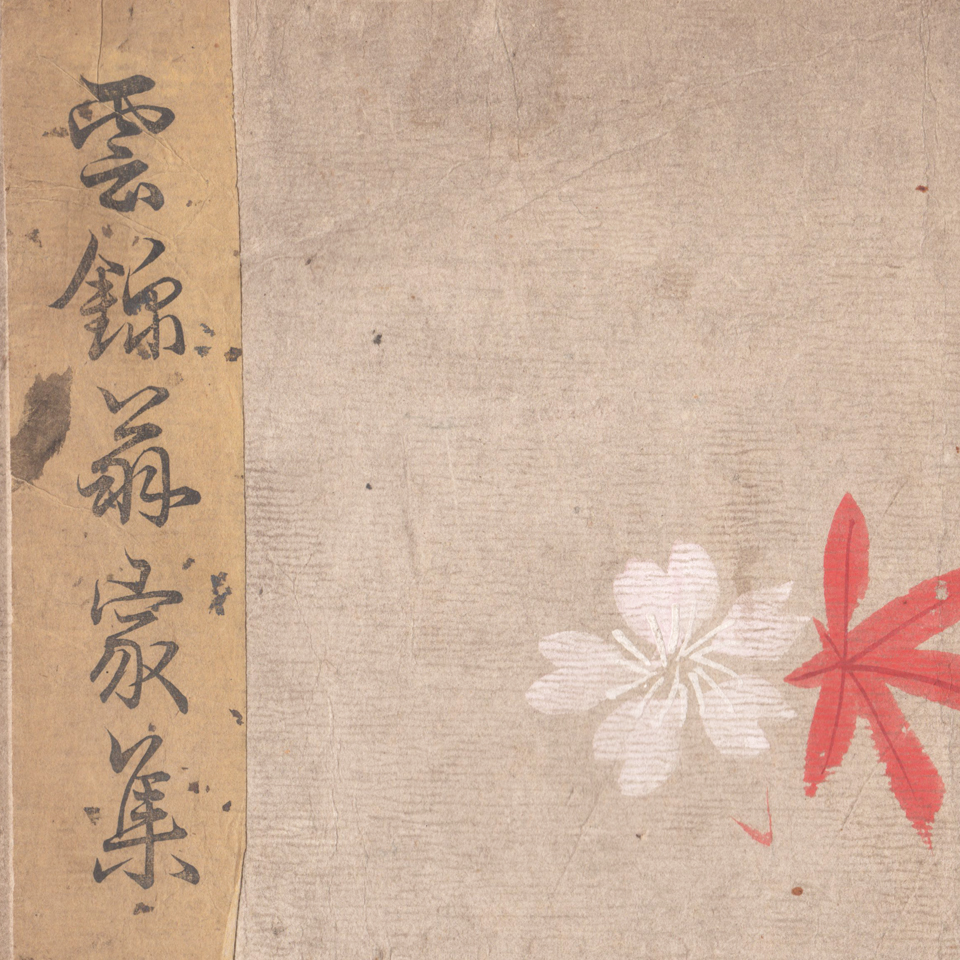 雲錦翁家集